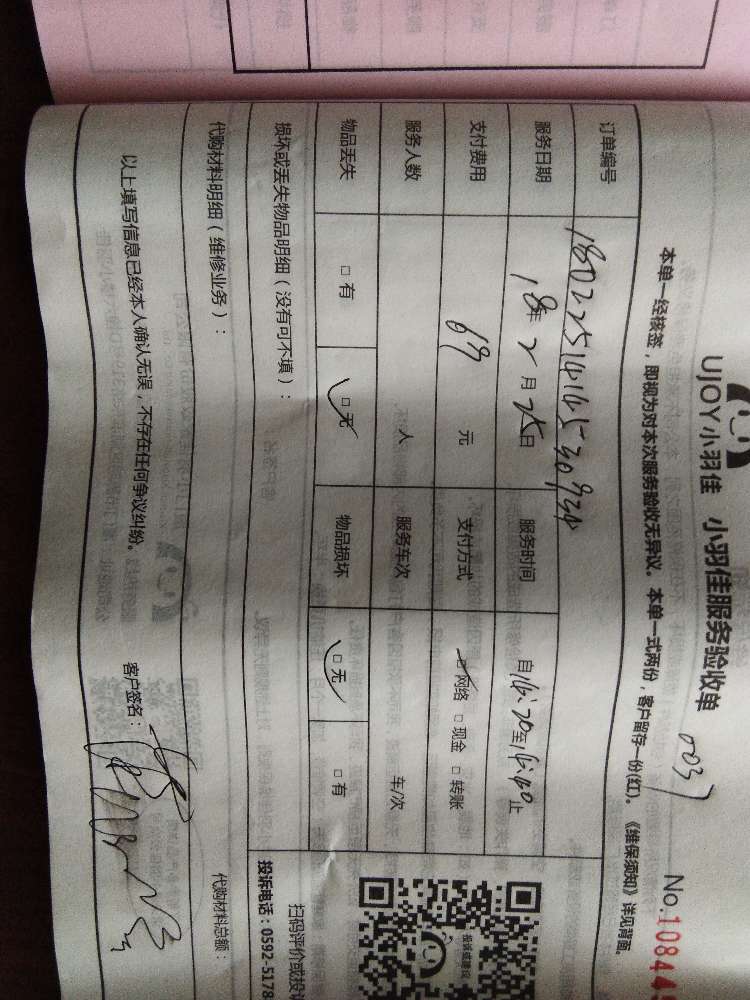 UJOY小羽佳 小羽佳服务验收单
0037
No.10844
本单一经核签，即视为对本次服务验收无异议。本单一式两份，客户留存一份(红)。《维保须知》详见背面。
订单编号
服务日期 18年2月25日 服务时间 自16:20至16:40止
支付费用 69 元 支付方式 □网络 □现金 □转账
服务人数 人 服务车次 车/次
物品丢失 □有 □无 物品损坏 □无 □有
损坏或丢失物品明细（没有可不填）：
扫码评价或投
投诉电话：0592-5178
代购材料明细（维修业务）： 代购材料总额：
以上填写信息已经本人确认无误，不存在任何争议纠纷。 客户签名：